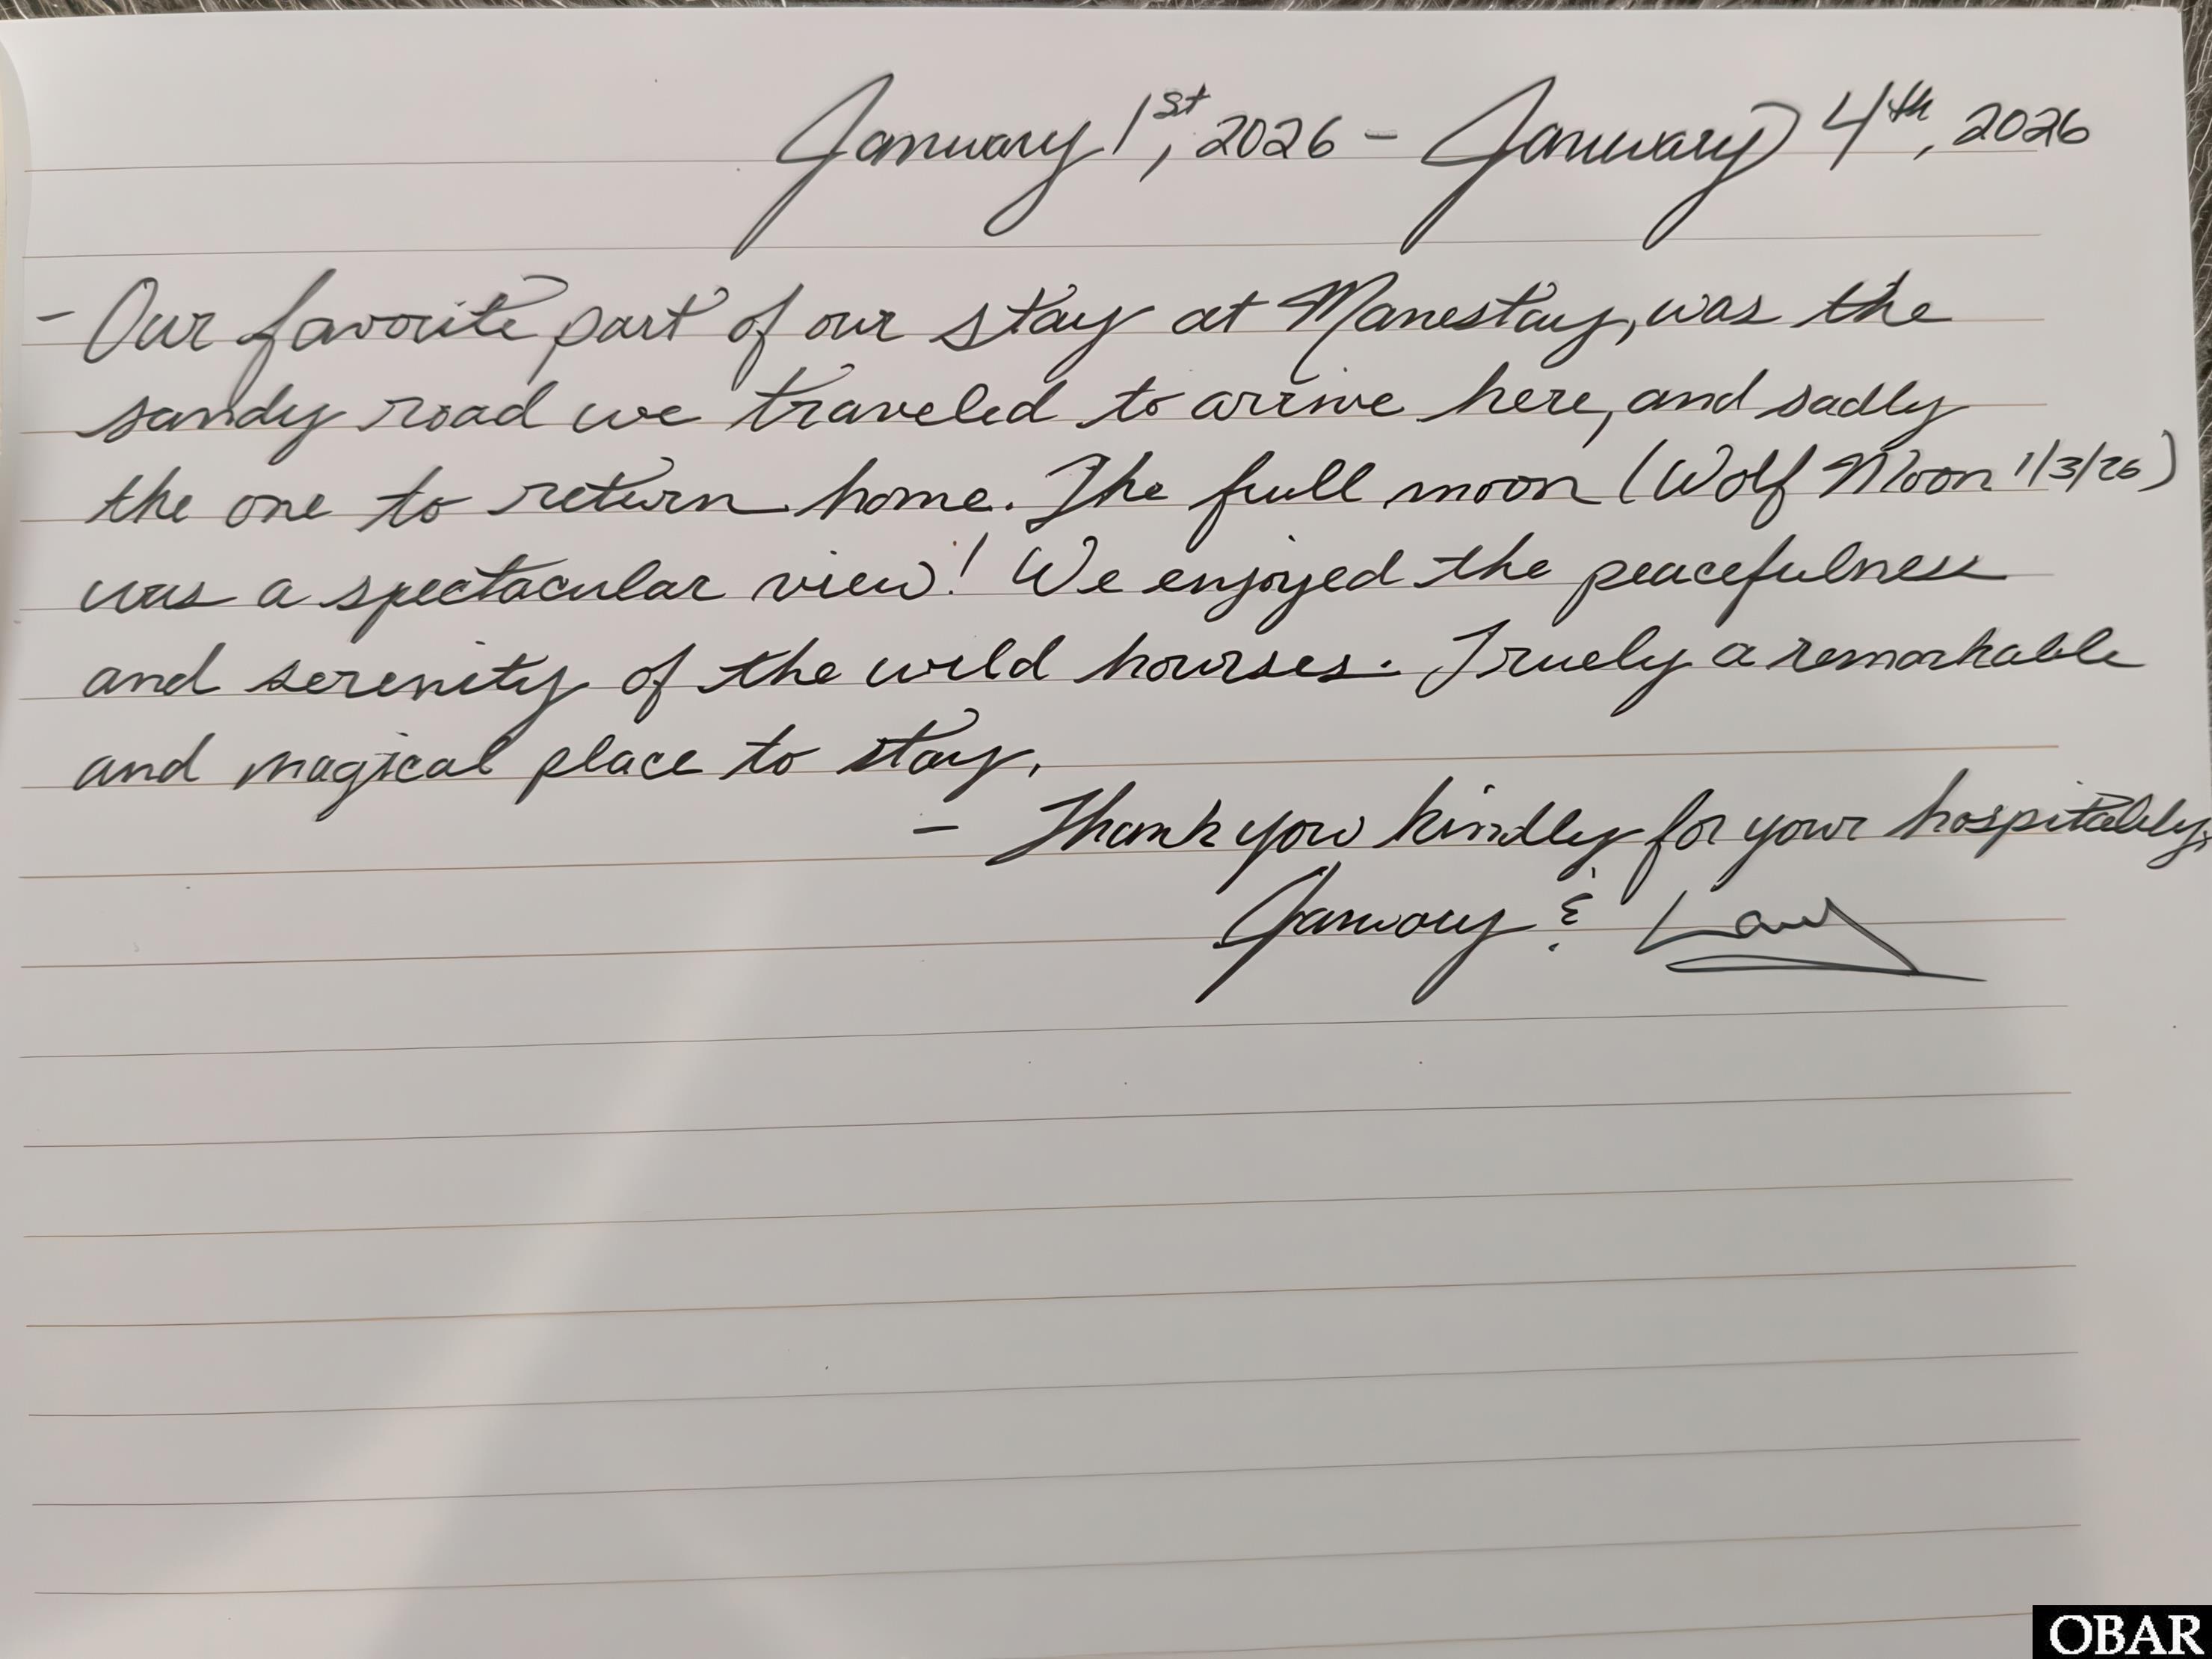 January 1st, 2026 - January 4th, 2026
- Our favorite part of our stay at Manestay, was the
sandy road we traveled to arrive here, and sadly
the one to return home. The full moon (Wolf Moon 1/3/26)
was a spectacular view! We enjoyed the peacefulness
and serenity of the wild hourses. Truely a remarkable
and magical place to stay.
- Thank you kindly for your hospitality,
January &
OBAR